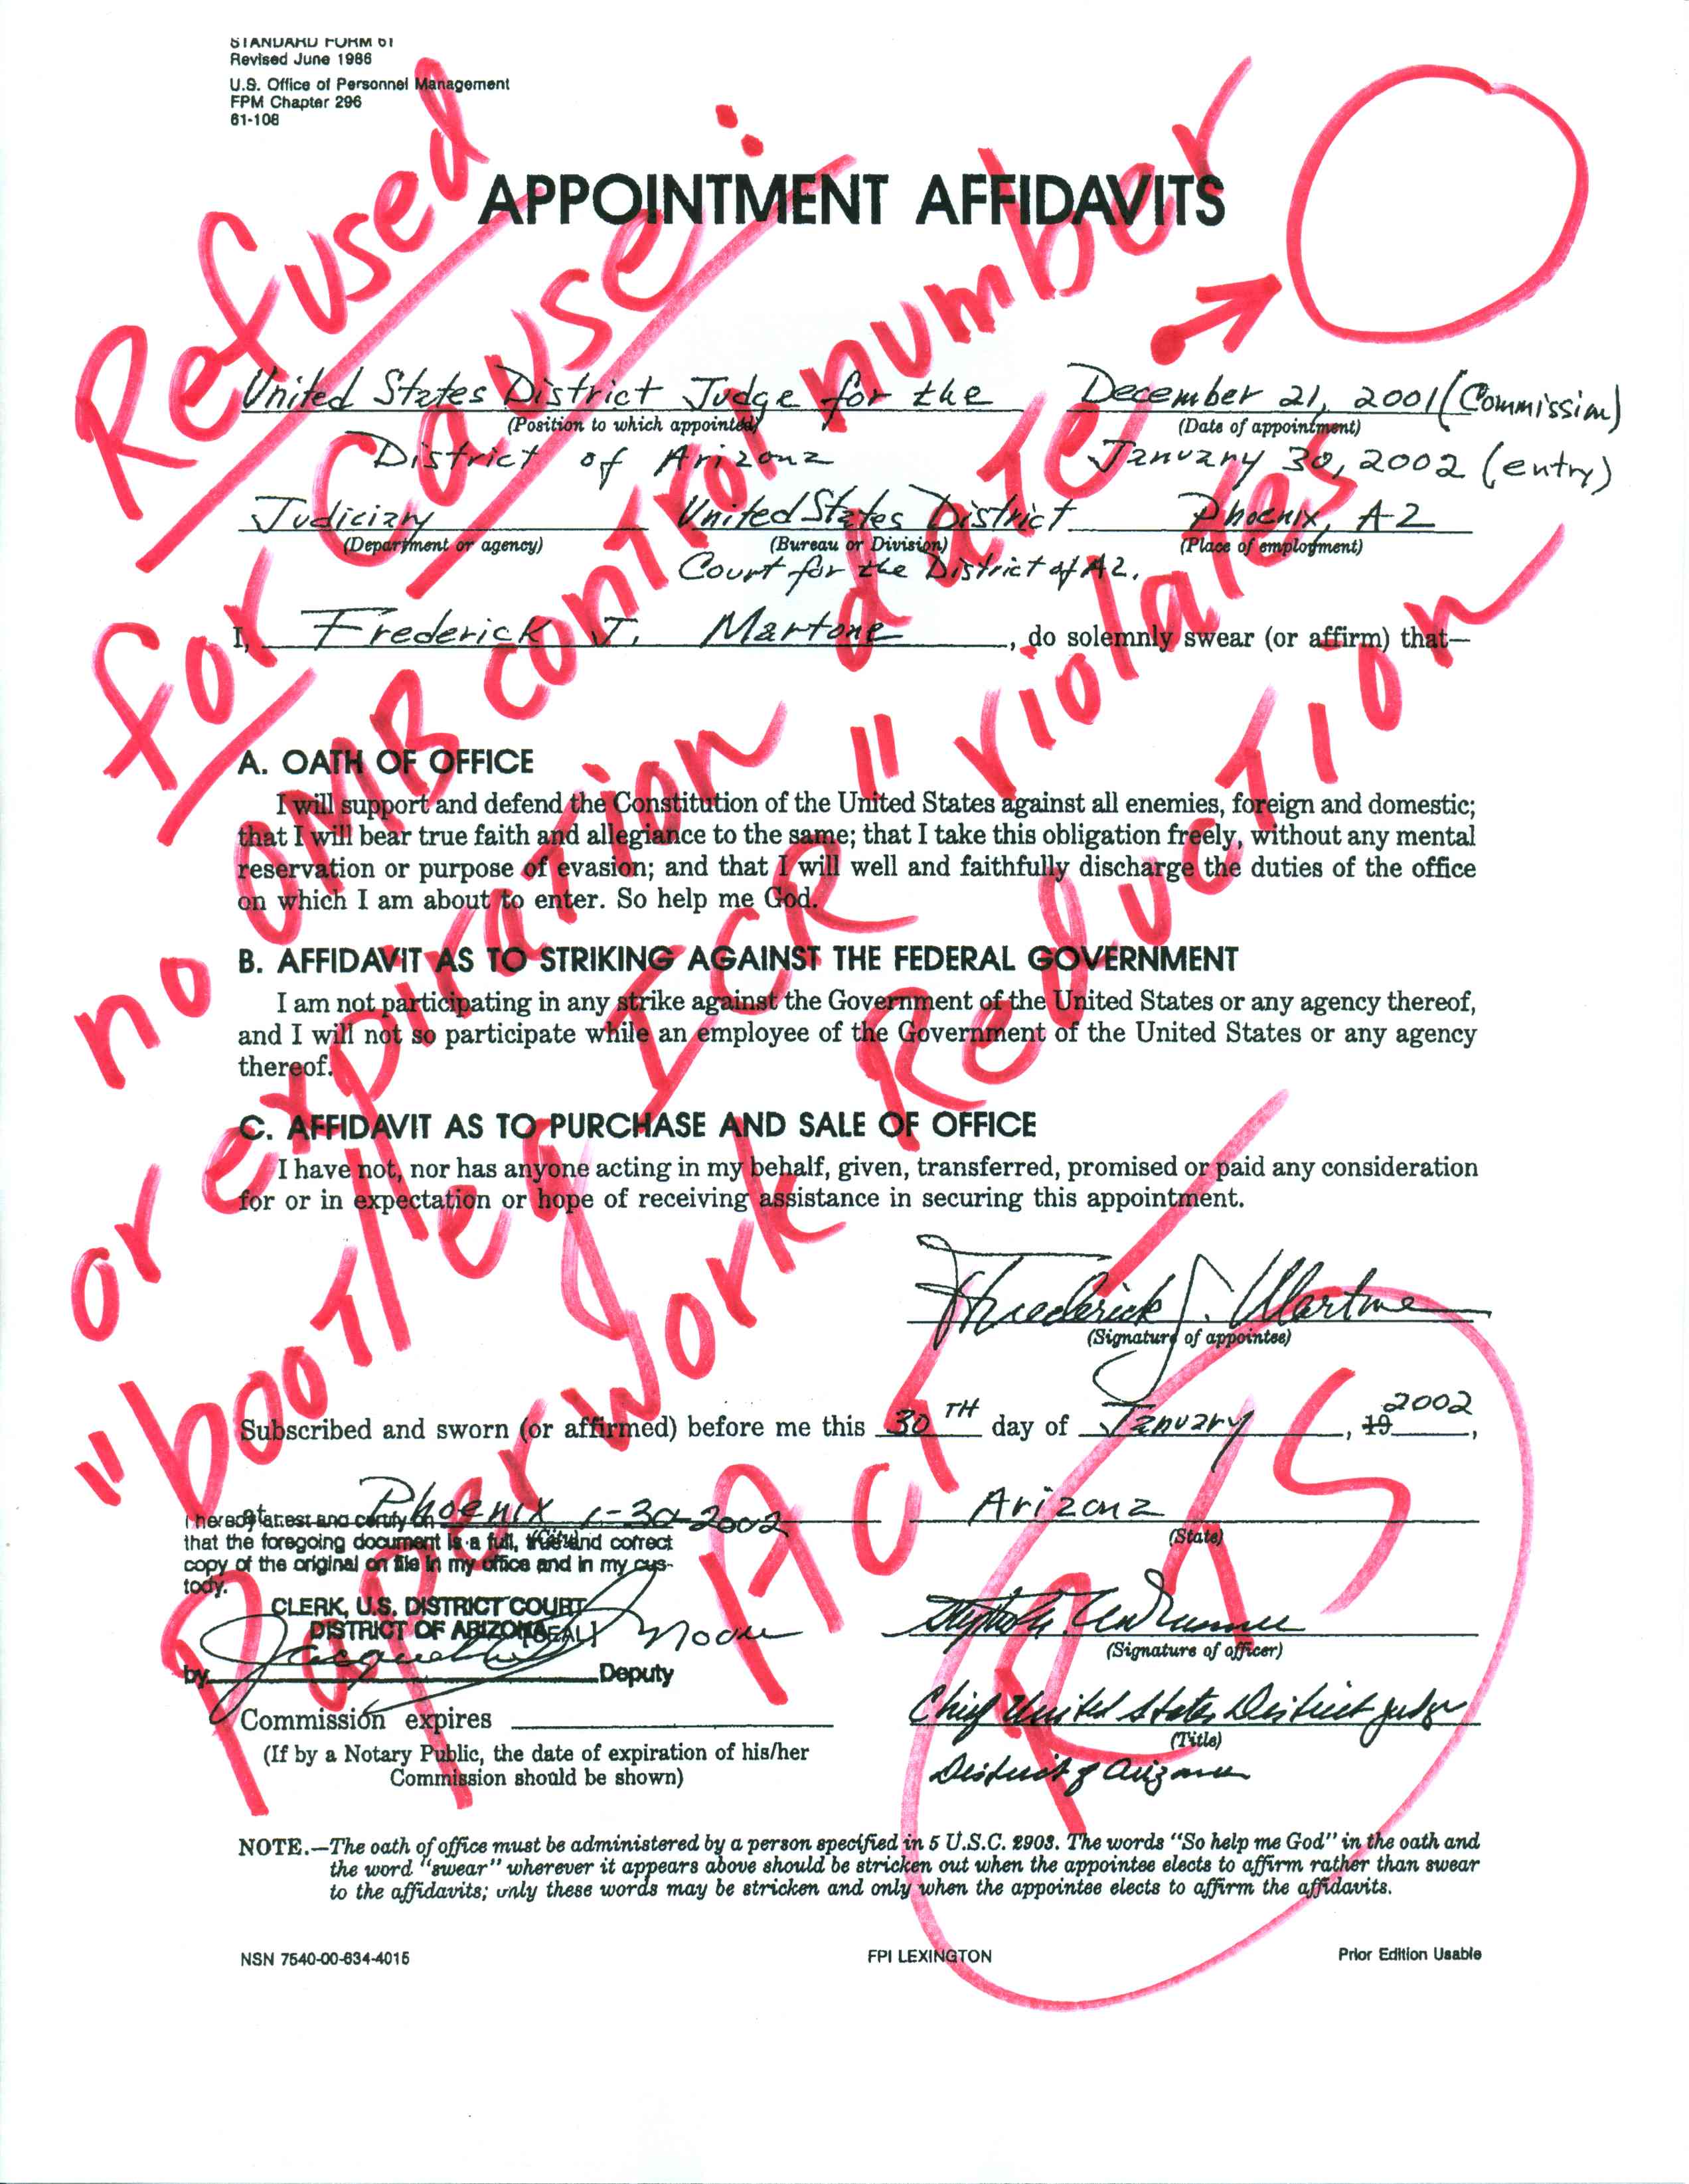 STANDARD FORM 61
Revised June 1986
U.S. Office of Personnel Management
FPM Chapter 296
61-108
APPOINTMENT AFFIDAVITS
United States District Judge for the December 21, 2001 (Commission)
(Position to which appointed) (Date of appointment)
District of Arizona January 30, 2002 (entry)
Judiciary United States District Phoenix, AZ
(Department or agency) (Bureau or Division) (Place of employment)
Court for the District of AZ.
I, Frederick J. Martone, do solemnly swear (or affirm) that—
A. OATH OF OFFICE
I will support and defend the Constitution of the United States against all enemies, foreign and domestic;
that I will bear true faith and allegiance to the same; that I take this obligation freely, without any mental
reservation or purpose of evasion; and that I will well and faithfully discharge the duties of the office
on which I am about to enter. So help me God.
B. AFFIDAVIT AS TO STRIKING AGAINST THE FEDERAL GOVERNMENT
I am not participating in any strike against the Government of the United States or any agency thereof,
and I will not so participate while an employee of the Government of the United States or any agency
thereof.
C. AFFIDAVIT AS TO PURCHASE AND SALE OF OFFICE
I have not, nor has anyone acting in my behalf, given, transferred, promised or paid any consideration
for or in expectation or hope of receiving assistance in securing this appointment.
Frederick J. Martone
(Signature of appointee)
Subscribed and sworn (or affirmed) before me this 30TH day of January, 19 2002,
at Phoenix 1-30-2002 Arizona
(City) (State)
I hereby attest and certify on
that the foregoing document is a full, true and correct
copy of the original on file in my office and in my cus-
tody.
CLERK, U.S. DISTRICT COURT
DISTRICT OF ARIZONA
[SEAL]
by Deputy
(Signature of officer)
Commission expires Chief United States District Judge
(Title)
(If by a Notary Public, the date of expiration of his/her
Commission should be shown)
District of Arizona
NOTE.—The oath of office must be administered by a person specified in 5 U.S.C. 2903. The words "So help me God" in the oath and
the word "swear" wherever it appears above should be stricken out when the appointee elects to affirm rather than swear
to the affidavits; only these words may be stricken and only when the appointee elects to affirm the affidavits.
NSN 7540-00-634-4015 FPI LEXINGTON Prior Edition Usable
Refused
for Cause:
no OMB control number
or expiration date
"bootleg ICR" violates
Paperwork Reduction
Act